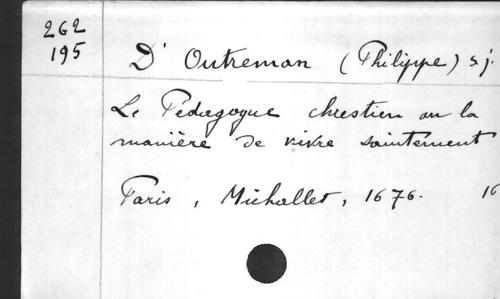 262
195
D' Outreman (Philippe) s j.
Le Pédagogue chrestien ou la
manière de vivre saintement
Paris, Michallet, 1676. 16